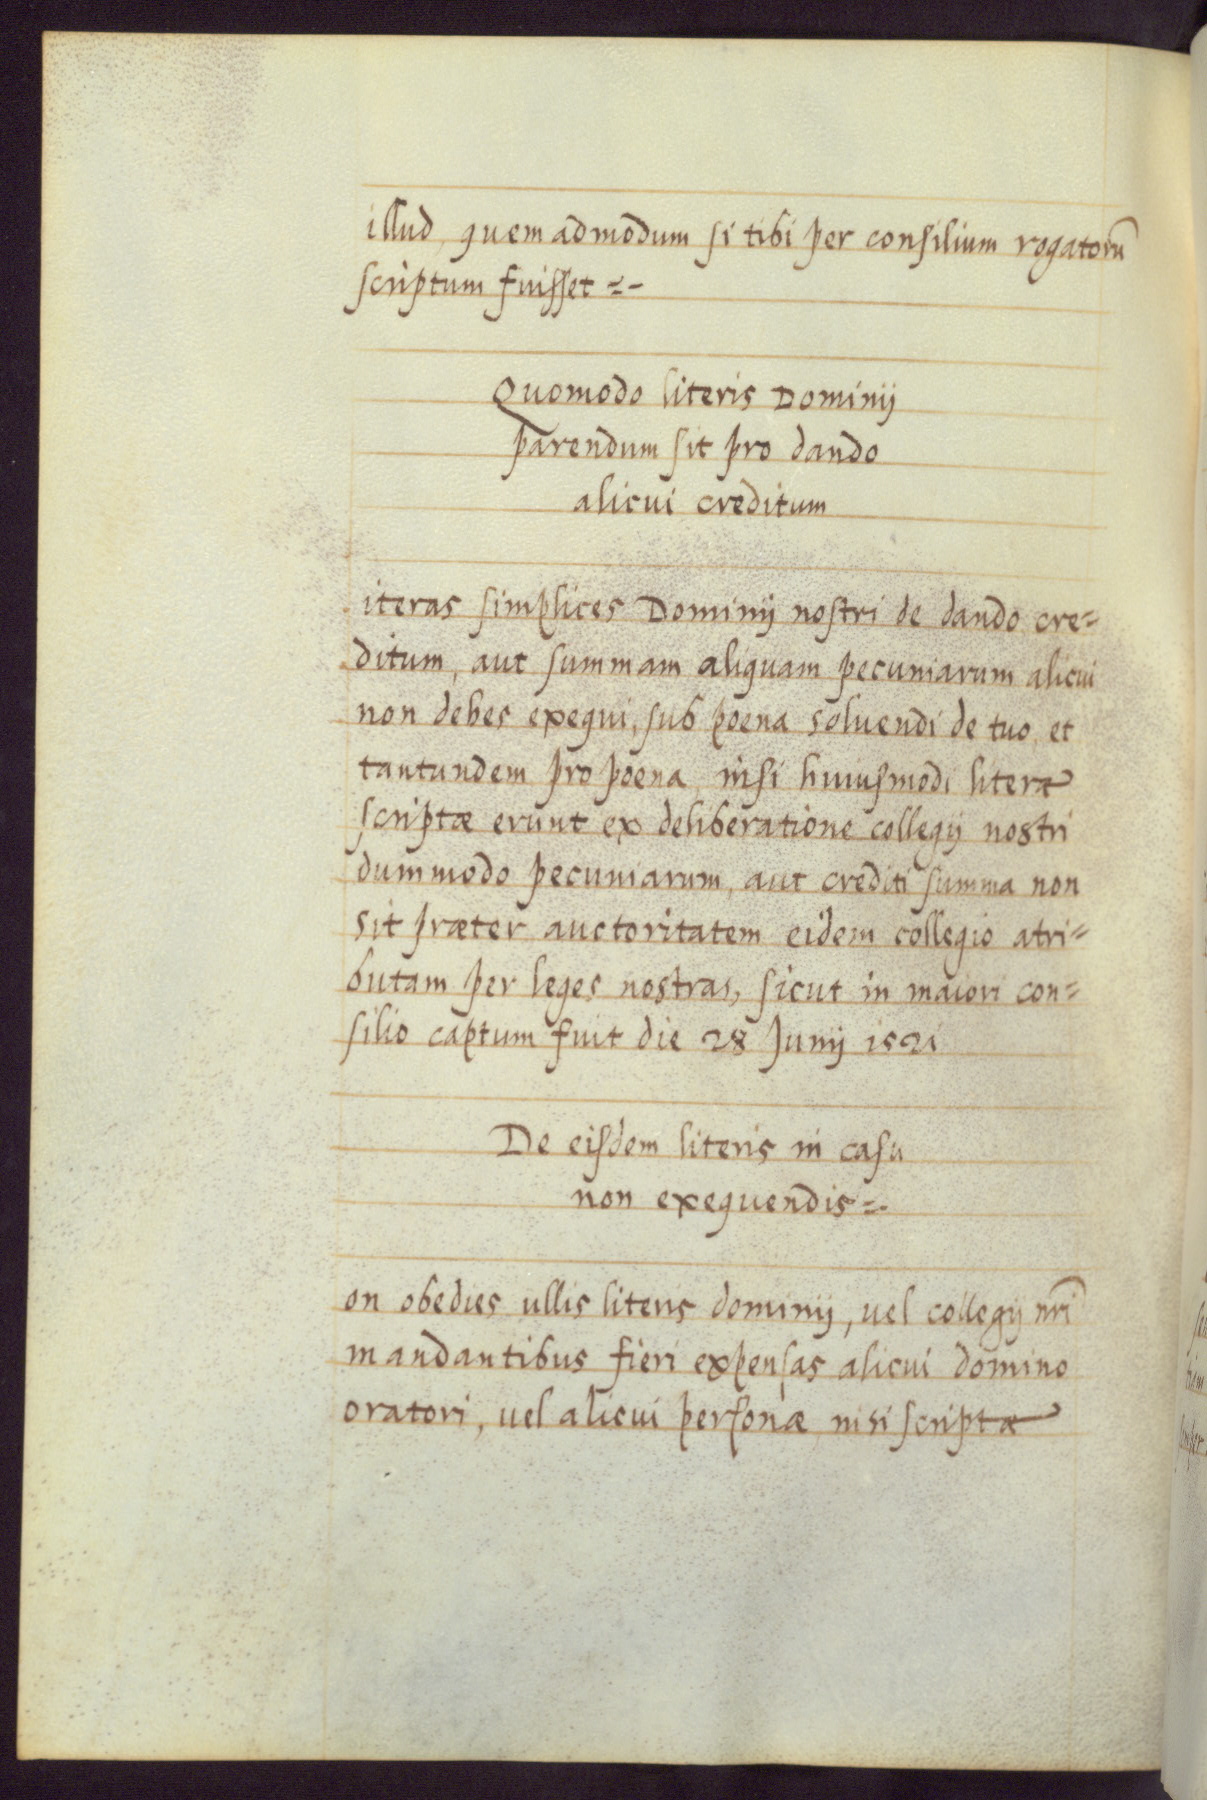 illud, quemadmodum si tibi per consilium rogatorũ
scriptum fuisset =-
Quomodo literis Dominij
parendum sit pro dando
alicui creditum
iteras simplices Dominij nostri de dando cre=
ditum, aut summam aliquam pecuniarum alicui
non debes exequi, sub poena soluendi de tuo, et
tantundem pro poena, nisi huiusmodi literæ
scriptæ erunt ex deliberatione collegij nostri
dummodo pecuniarum, aut crediti summa non
sit præter auctoritatem eidem collegio atri=
butam per leges nostras, sicut in maiori con=
silio captum fuit die 28 Junij 1521
De eisdem literis in casu
non exequendis =-
on obedies ullis literis dominij, uel collegij nr̃i
mandantibus fieri expensas alicui domino
oratori, uel alicui personæ, nisi scriptæ